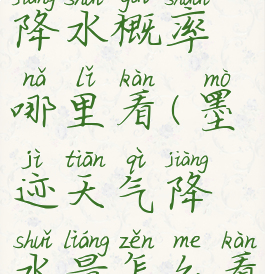 jiàng shuǐ gài shuài
降水概率
nǎ lǐ kàn mò
哪里看(墨
jì tiān qì jiàng
迹天气降
shuǐ liáng zěn me kàn
水量怎么看